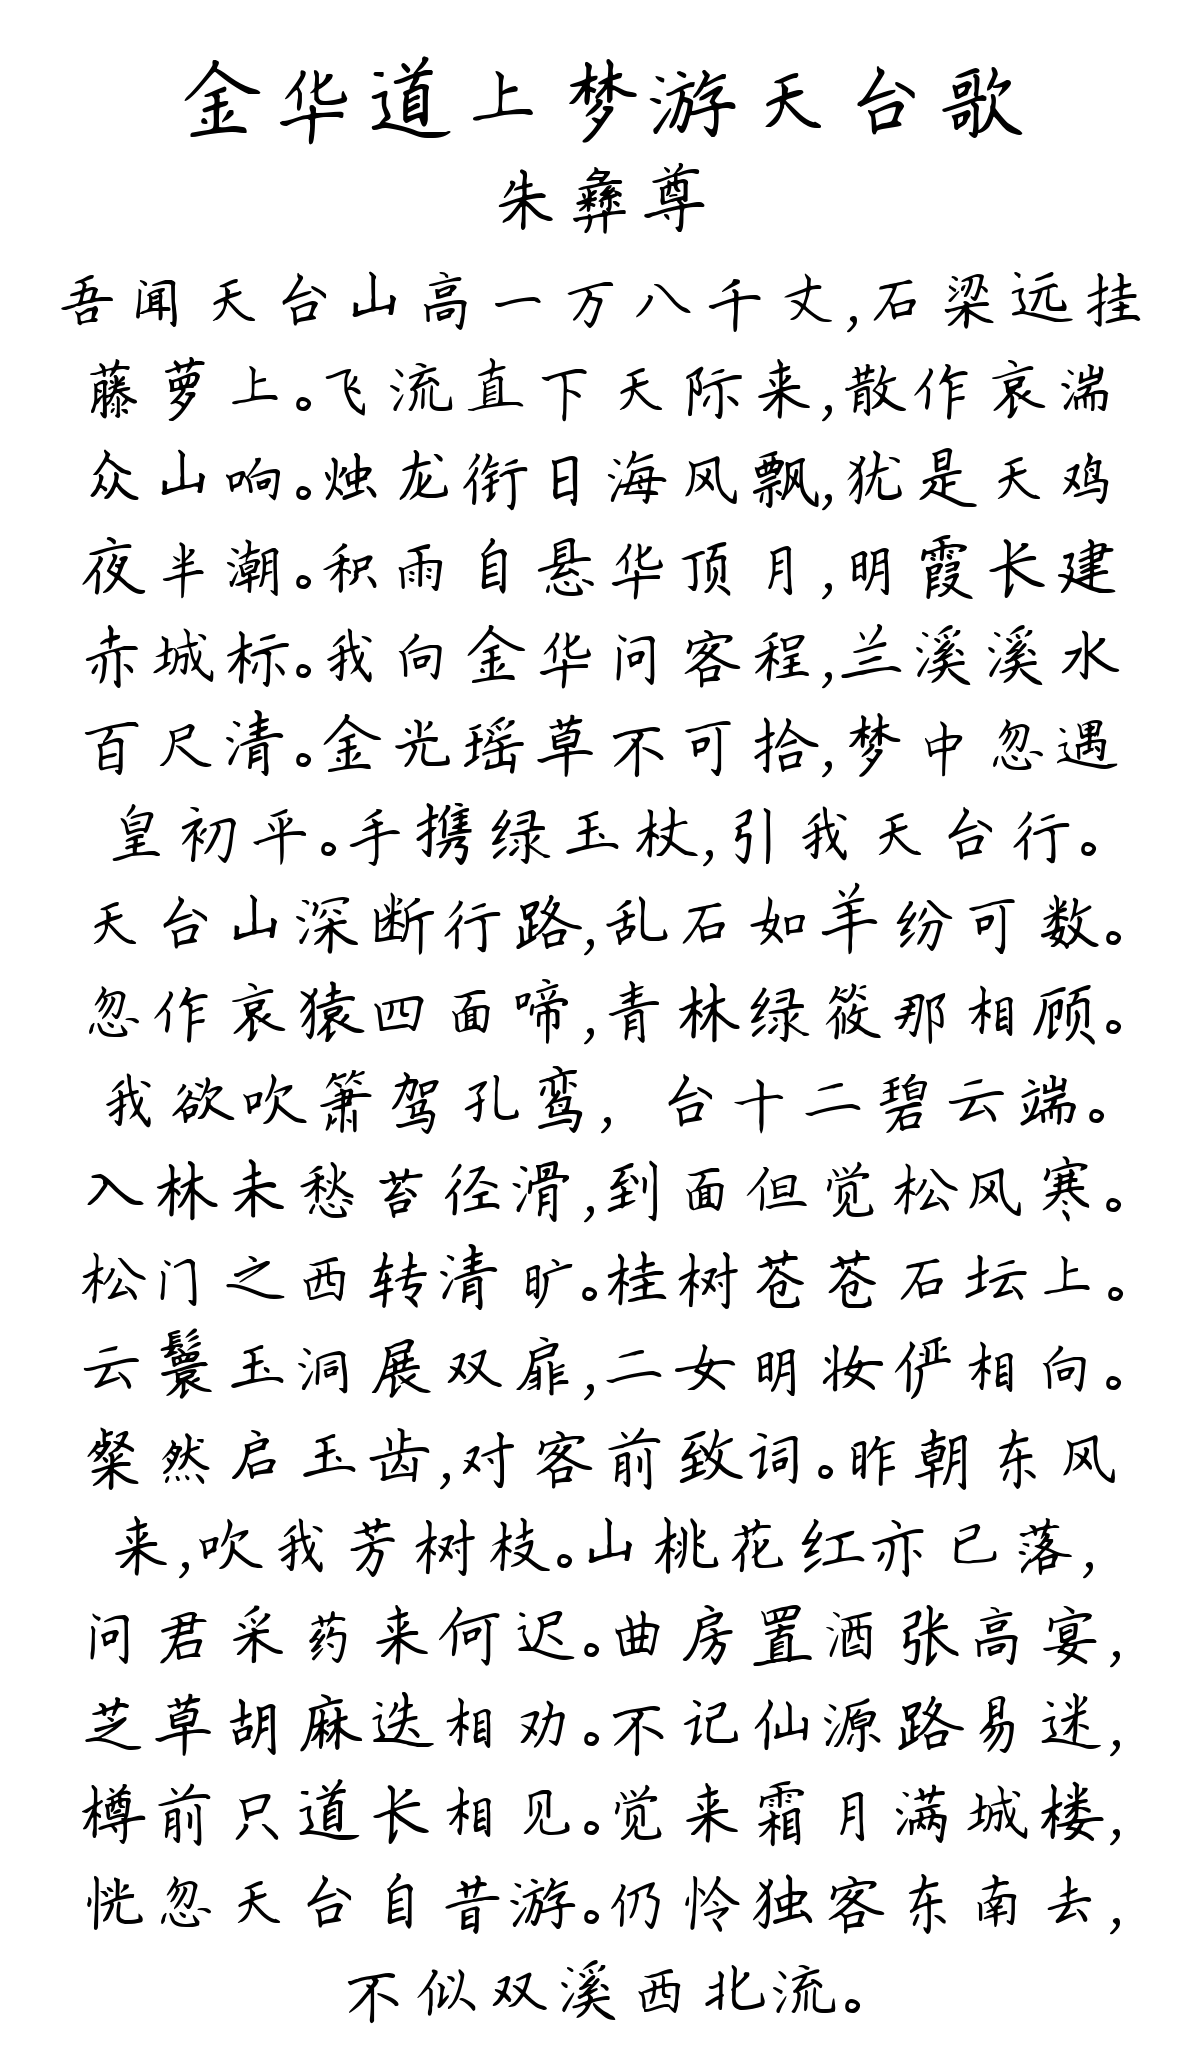 金华道上梦游天台歌
朱彝尊
吾闻天台山高一万八千丈,石梁远挂
藤萝上。飞流直下天际来,散作哀湍
众山响。烛龙衔日海风飘,犹是天鸡
夜半潮。积雨自悬华顶月,明霞长建
赤城标。我向金华问客程,兰溪溪水
百尺清。金光瑶草不可拾,梦中忽遇
皇初平。手携绿玉杖,引我天台行。
天台山深断行路,乱石如羊纷可数。
忽作哀猿四面啼,青林绿筱那相顾。
我欲吹箫驾孔鸾, 台十二碧云端。
入林未愁苔径滑,到面但觉松风寒。
松门之西转清旷。桂树苍苍石坛上。
云鬟玉洞展双扉,二女明妆俨相向。
粲然启玉齿,对客前致词。昨朝东风
来,吹我芳树枝。山桃花红亦已落,
问君采药来何迟。曲房置酒张高宴,
芝草胡麻迭相劝。不记仙源路易迷,
樽前只道长相见。觉来霜月满城楼,
恍忽天台自昔游。仍怜独客东南去,
不似双溪西北流。